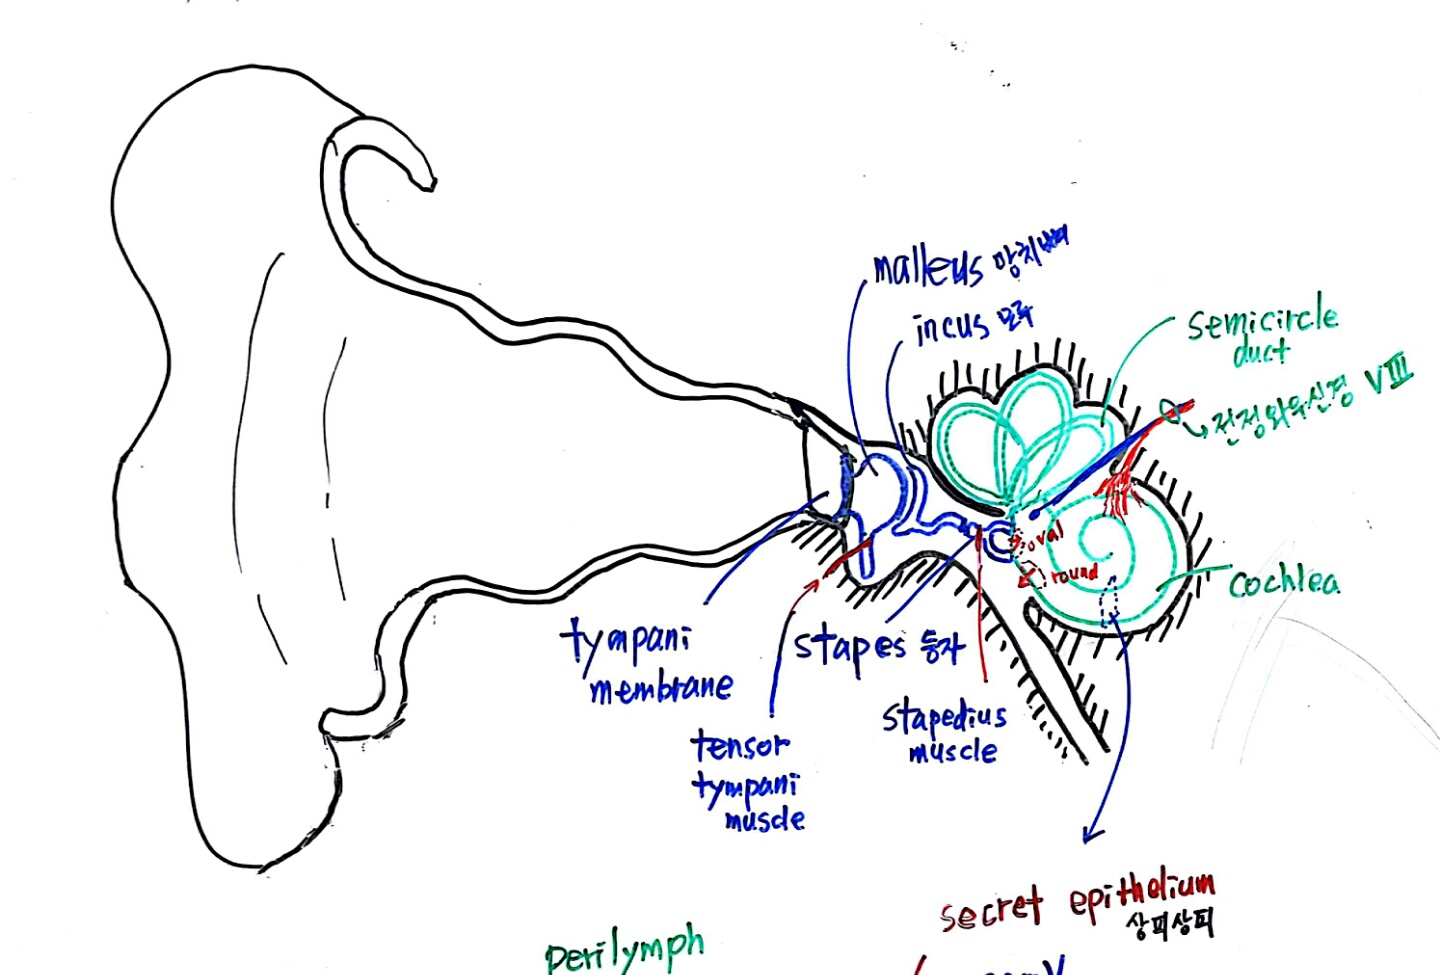 malleus 망치뼈
incus 모루
semicircle
duct
전정와우신경 VIII
oval
round
cochlea
tympani
membrane
stapes 등자
tensor
tympani
muscle
stapedius
muscle
secret epithelium
상피상피
perilymph